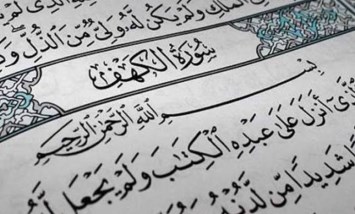 الملك ولم يكن له ولي من الذل
سورة الكهف
بسم الله الرحمن الرحيم
أنزل على عبده الكتاب ولم يجعل
شديدا من لدنه